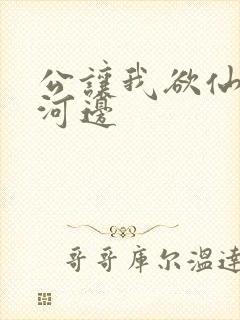 公讓我欲仙
河邊
哥哥库尔温達